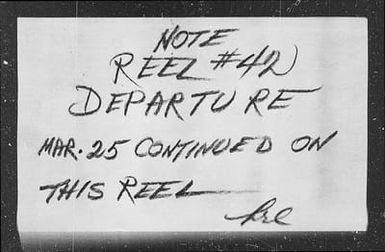 NOTE
REEL #42
DEPARTURE
MAR. 25 CONTINUED ON
THIS REEL